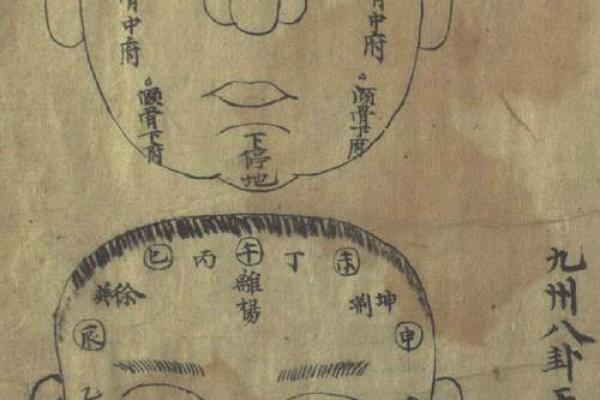 骨中府
骨中府
頤骨下府
頤骨下府
下停地
九州八卦
巳
丙
午
丁
未
離揚
巽徐
荊坤
辰
申
乙